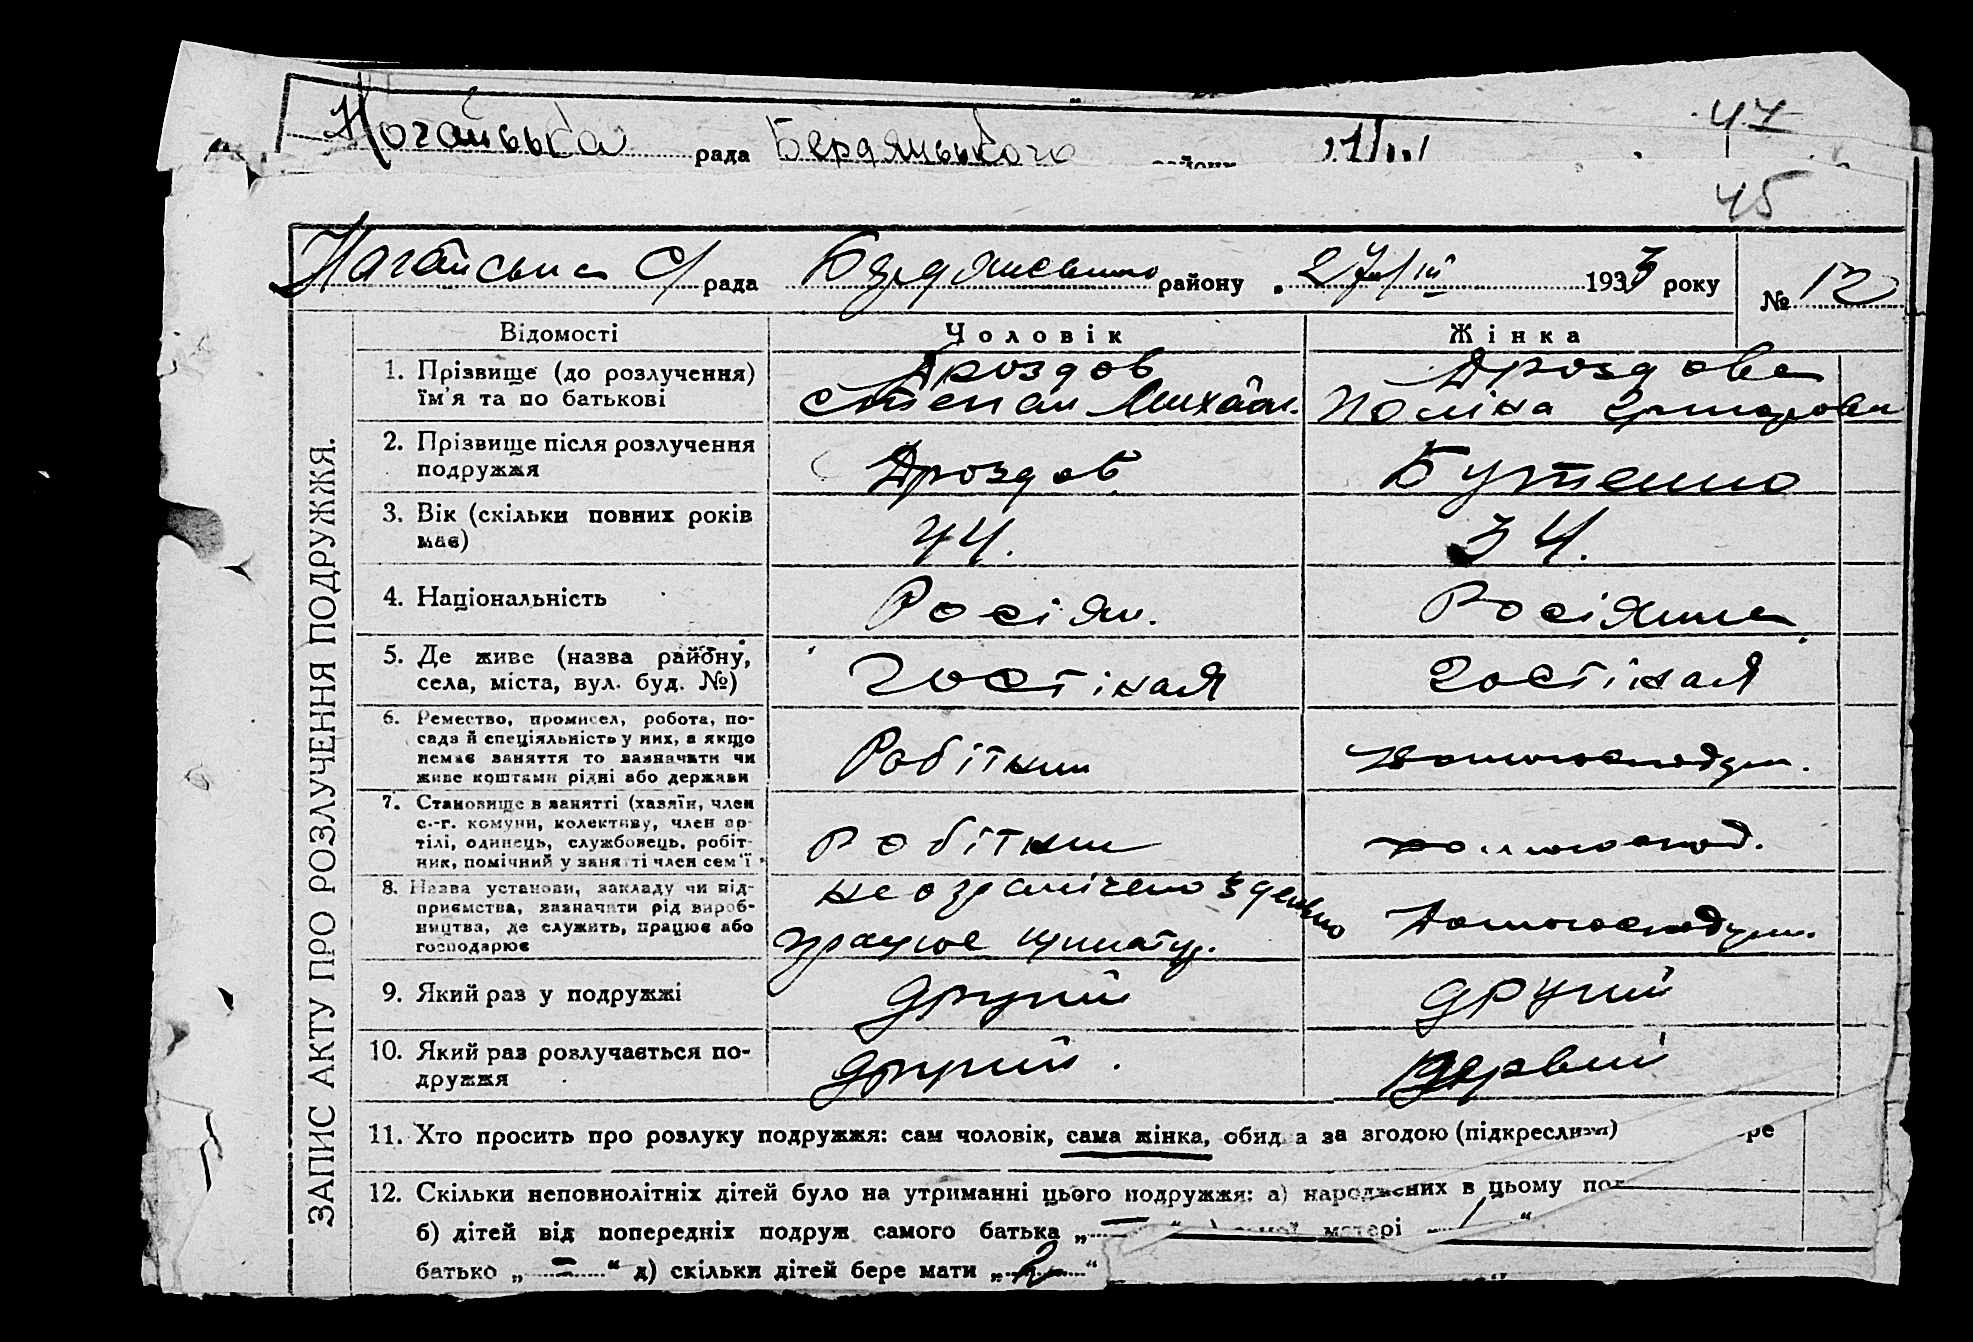 Ногайська рада Бердянського району
47
45
Нагайська С/рада Бердянського району 27/III 1933 року № 12
Відомості Чоловік Жінка
ЗАПИС АКТУ ПРО РОЗЛУЧЕННЯ ПОДРУЖЖЯ.
1. Прізвище (до розлучення) Дроздов Дроздова
їм'я та по батькові Степан Михайл. Поліна
2. Прізвище після розлучення
подружжя Дроздов Бутенко
3. Вік (скільки повних років
має) 44. 34.
4. Національність Росіян. Росіянка
5. Де живе (назва району,
села, міста, вул. буд. №) Гостіная Гостіная
6. Ремество, промисел, робота, по-
сада й спеціяльність у них, а якщо
немає заняття то зазначити чи
живе коштами рідні або держави Робітник домогосподум.
7. Становище в занятті (хазяїн, член
с.-г. комуни, колективу, член ар-
тілі, одинець, службовець, робіт-
ник, помічний у занятті член сем'ї Робітник домогоспод.
8. Назва установи, закладу чи під-
приємства, зазначити рід вироб-
ництва, де служить, працює або
господарює працює Домогосподум.
9. Який раз у подружжі другий другий
10. Який раз розлучається по-
дружжя другий. первий
11. Хто просить про розлуку подружжя: сам чоловік, сама жінка, обидва за згодою (підкреслити)
12. Скільки неповнолітніх дітей було на утриманні цього подружжя: а) народжених в цьому
б) дітей від попередніх подруж самого батька „ — “ самої матері „ 1 “
батько „ — “ д) скільки дітей бере мати „ 2 “